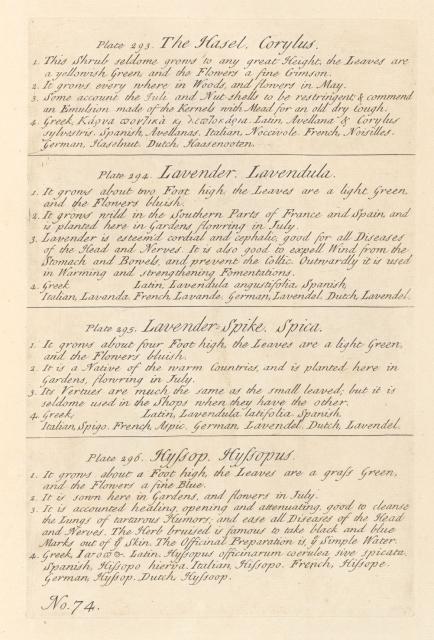 Plate 293. The Hasel. Corylus.
1. This Shrub seldome grows to any great Height, the Leaves are
a yellowish Green, and the Flowers a fine Crimson.
2. It grows every where in Woods, and flowers in May.
3. Some account the Juli and Nut-shells to be restringent & commend
an Emulsion made of the Kernels with Mead for an old dry Cough.
4. Greek, Latin, Avellana & Corylus
sylvestris. Spanish, Avellanas. Italian, Noccivole. French, Noisilles.
German, Haselnut. Dutch, Haasenooten.
Plate 294. Lavender. Lavendula.
1. It grows about two Foot high, the Leaves are a light Green,
and the Flowers bluish.
2. It grows wild in the Southern Parts of France and Spain, and
is planted here in Gardens flowring in July.
3. Lavender is esteem'd cordial and cephalic, good for all Diseases
of the Head and Nerves. It is also good to expell Wind from the
Stomach and Bowels, and prevent the Collic. Outwardly it is used
in Warming and strengthening Fomentations.
4. Greek Latin, Lavendula angustifolia. Spanish,
Italian, Lavanda. French, Lavande. German, Lavendel. Dutch, Lavendel.
Plate 295. Lavender-Spike. Spica.
1. It grows about four Foot high, the Leaves are a light Green,
and the Flowers bluish.
2. It is a Native of the warm Countries, and is planted here in
Gardens, flowring in July.
3. Its Vertues are much the same as the small leaved; but it is
seldome used in the Shops when they have the other.
4. Greek, Latin, Lavendula latifolia. Spanish
Italian, Spigo. French, Aspic. German, Lavendel. Dutch, Lavendel.
Plate 296. Hyssop. Hyssopus.
1. It grows about a Foot high, the Leaves are a grass Green,
and the Flowers a fine Blue.
2. It is sown here in Gardens, and flowers in July.
3. It is accounted healing, opening and attenuating, good to cleanse
the Lungs of tartarous Humors, and ease all Diseases of the Head
and Nerves. The Herb bruised is famous to take black and blue
Marks out of yͤ Skin. The Officinal Preparation is, yͤ Simple Water.
4. Greek, Latin, Hyssopus officinarum coerulea, sive spicata.
Spanish, Hissopo hierva. Italian, Hissopo. French, Hissope.
German, Hyssop. Dutch, Hyssoop.
No. 74.